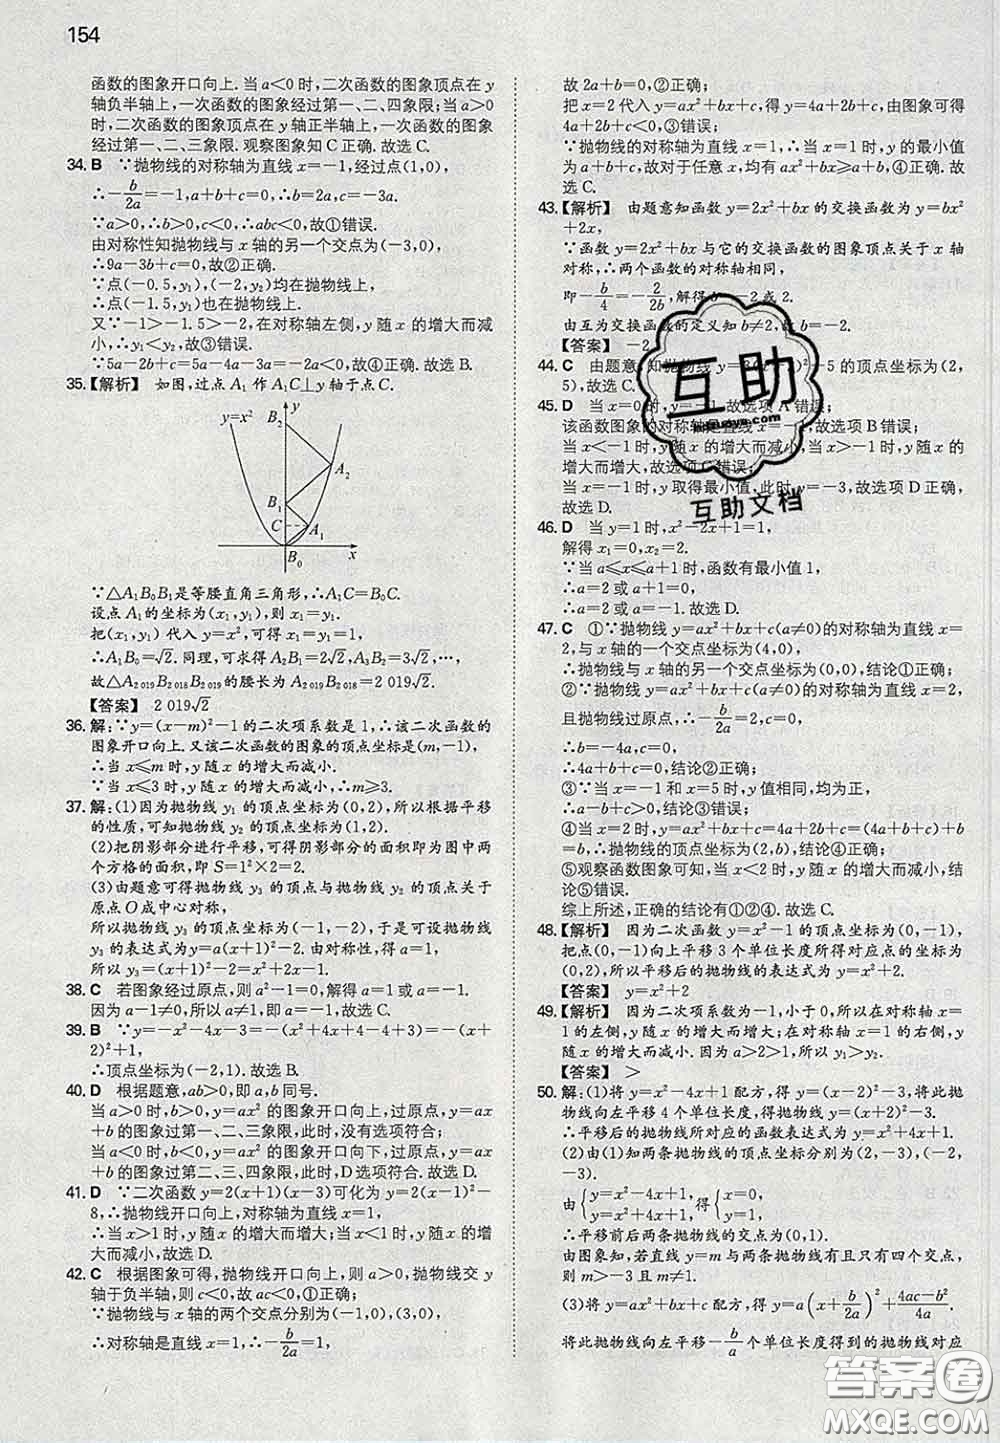 154
函数的图象开口向上.当a<0时,二次函数的图象顶点在y
轴负半轴上,一次函数的图象经过第一、二、四象限;当a>0
时,二次函数的图象顶点在y轴正半轴上,一次函数的图象
经过第一、二、三象限.观察图象知C正确.故选C.
34. B ∵抛物线的对称轴为直线x=-1,经过点(1,0),
∴-b/2a=-1,a+b+c=0,∴b=2a,c=-3a.
∵a>0,∴b>0,c<0,∴abc<0,故①错误.
由对称性知抛物线与x轴的另一个交点为(-3,0),
∴9a-3b+c=0,故②正确.
∵点(-0.5,y₁),(-2,y₂)均在抛物线上,
∴点(-1.5,y₁)也在抛物线上.
又∵-1>-1.5>-2,在对称轴左侧,y随x的增大而减
小,∴y₁<y₂,故③错误.
∵5a-2b+c=5a-4a-3a=-2a<0,故④正确.故选B.
35.【解析】 如图,过点A₁作A₁C⊥y轴于点C.
y=x²
y
B₂
A₂
B₁
C
A₁
B₀
x
∵△A₁B₀B₁是等腰直角三角形,∴A₁C=B₀C.
设点A₁的坐标为(x₁,y₁),则x₁=y₁.
把(x₁,y₁)代入y=x²,可得x₁=y₁=1,
∴A₁B₀=√2.同理,可求得A₂B₁=2√2,A₃B₂=3√2,…,
故△A₂₀₁₉B₂₀₁₈B₂₀₁₉的腰长为A₂₀₁₉B₂₀₁₈=2 019√2.
【答案】 2 019√2
36. 解:∵y=(x-m)²-1的二次项系数是1,∴该二次函数的
图象开口向上.又该二次函数的图象的顶点坐标是(m,-1),
∴当x≤m时,y随x的增大而减小.
∵当x≤3时,y随x的增大而减小,∴m≥3.
37. 解:(1)因为抛物线y₁的顶点坐标为(0,2),所以根据平移
的性质,可知抛物线y₂的顶点坐标为(1,2).
(2)把阴影部分进行平移,可得阴影部分的面积即为图中两
个方格的面积,即S=1²×2=2.
(3)由题意可得抛物线y₃的顶点与抛物线y₂的顶点关于
原点O成中心对称,
所以抛物线y₃的顶点坐标为(-1,-2),于是可设抛物线
y₃的表达式为y=a(x+1)²-2.由对称性,得a=1,
所以y₃=(x+1)²-2=x²+2x-1.
38. C 若图象经过原点,则a²-1=0,解得a=1或a=-1.
因为a-1≠0,所以a≠1,即a=-1.故选C.
39. B ∵y=-x²-4x-3=-(x²+4x+4-4+3)=-(x+
2)²+1,
∴顶点坐标为(-2,1).故选B.
40. D 根据题意,ab>0,即a,b同号.
当a>0时,b>0,y=ax²的图象开口向上,过原点,y=ax+
b的图象过第一、二、三象限,此时,没有选项符合;
当a<0时,b<0,y=ax²的图象开口向下,过原点,y=ax+
b的图象过第二、三、四象限,此时,D选项符合.故选D.
41. D ∵二次函数y=2(x+1)(x-3)可化为y=2(x-1)²-
8,∴抛物线开口向上,对称轴为直线x=1,
∴当x>1时,y随x的增大而增大;当x<1时,y随x的增大
而减小,故选D.
42. C 根据图象可得,抛物线开口向上,则a>0,抛物线交y
轴于负半轴,则c<0,故ac<0,①正确;
∵抛物线与x轴的两个交点分别为(-1,0),(3,0),
∴对称轴是直线x=1,∴-b/2a=1,
故2a+b=0,②正确;
把x=2代入y=ax²+bx+c,得y=4a+2b+c,由图象可得
4a+2b+c<0,③错误;
∵抛物线的对称轴为直线x=1,当x=1时,y的最小值
为a+b+c,故对于任意x,均有ax²+bx≥a+b,④正确.故
选C.
43.【解析】 由题意知函数y=2x²+bx的交换函数为y=bx²
+2x.
∵函数y=2x²+bx与它的交换函数的图象顶点关于x轴
对称,∴两个函数的对称轴相同,
即-b/4=-2/2b,解得b=-2或2.
由互为交换函数的定义知b≠2,故b=-2.
【答案】 -2
44. C 由题意知抛物线y=3(x-2)²-5的顶点坐标为(2,
5),故选C.
45. D 当x=0时,y=-1,故选项A错误;
该函数图象的对称轴是直线x=-1,故选项B错误;
当x<-1时,y随x的增大而减小,当x>-1时,y随x的
增大而增大,故选项C错误;
当x=-1时,y取得最小值,此时y=-3,故选项D正确.
故选D.
46. D 当y=1时,x²-2x+1=1,
解得x₁=0,x₂=2.
∵当a≤x≤a+1时,函数有最小值1,
∴a=2或a+1=0,
∴a=2或a=-1.故选D.
47. C ①∵抛物线y=ax²+bx+c(a≠0)的对称轴为直线x=
2,与x轴的一个交点坐标为(4,0),
∴抛物线与x轴的另一个交点坐标为(0,0),结论①正确;
②∵抛物线y=ax²+bx+c(a≠0)的对称轴为直线x=2,
且抛物线过原点,∴-b/2a=2,c=0,
∴b=-4a,c=0,
∴4a+b+c=0,结论②正确;
③∵当x=-1和x=5时,y值相同,且均为正,
∴a-b+c>0,结论③错误;
④当x=2时,y=ax²+bx+c=4a+2b+c=(4a+b+c)+b
=b,∴抛物线的顶点坐标为(2,b),结论④正确;
⑤观察函数图象可知,当x<2时,y随x的增大而减小,结
论⑤错误.
综上所述,正确的结论有①②④.故选C.
48.【解析】 因为二次函数y=x²-1的顶点坐标为(0,-1),
把点(0,-1)向上平移3个单位长度所得对应点的坐标为
(0,2),所以平移后的抛物线的表达式为y=x²+2.
【答案】 y=x²+2
49.【解析】 因为二次项系数为-1,小于0,所以在对称轴x=
1的左侧,y随x的增大而增大;在对称轴x=1的右侧,y
随x的增大而减小.因为a>2>1,所以y₁>y₂.
【答案】 >
50. 解:(1)将y=x²-4x+1配方,得y=(x-2)²-3,将此抛
物线向左平移4个单位长度,得抛物线y=(x+2)²-3.
∴平移后的抛物线所对应的函数表达式为y=x²+4x+1.
(2)由(1)知,两抛物线的顶点坐标分别为(2,-3),(-2,
-3).
由{y=x²-4x+1, y=x²+4x+1,得{x=0, y=1,
∴平移前后两条抛物线的交点为(0,1).
由图象知,若直线y=m与两条抛物线有且只有四个交点,
则m>-3且m≠1.
(3)将y=ax²+bx+c配方,得y=a(x+b/2a)²+(4ac-b²)/4a.
将此抛物线向左平移-b/a个单位长度得到的抛物线对应
互助
互助文档
答案圈
MXQE.COM